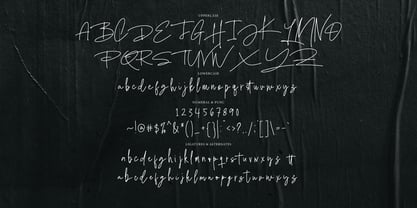 UPPERCASE
ABCDEFGHIJKLMNO
PQRSTUVWXYZ
LOWERCASE
abcdefghijklmnopqrstuvwxyz
NUMERAL & PUNC
1234567890
~!@#$%^&*()_+{}|:"<>?../;'[]\=-`
LIGATURES & ALTERNATES
abcdefghijklmnopqrstuvwxyz tt
abcdefghijklmnopqrstuvwxyz